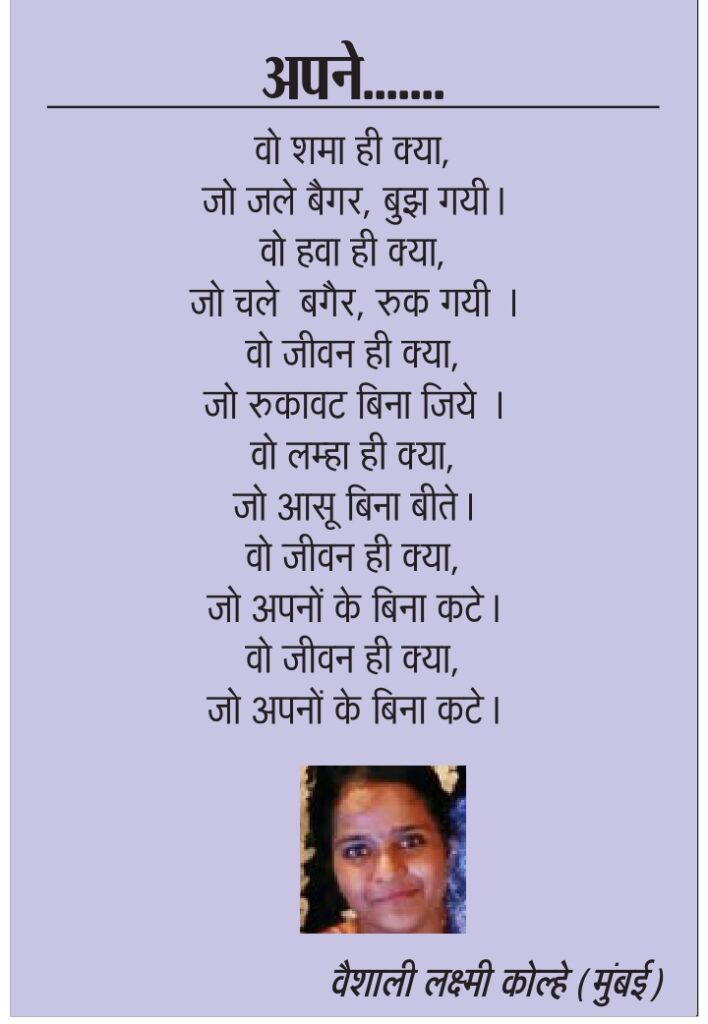 अपने.......
वो शमा ही क्या,
जो जले बैगर, बुझ गयी।
वो हवा ही क्या,
जो चले बगैर, रुक गयी ।
वो जीवन ही क्या,
जो रुकावट बिना जिये ।
वो लम्हा ही क्या,
जो आसू बिना बीते।
वो जीवन ही क्या,
जो अपनों के बिना कटे।
वो जीवन ही क्या,
जो अपनों के बिना कटे।
वैशाली लक्ष्मी कोल्हे (मुंबई)